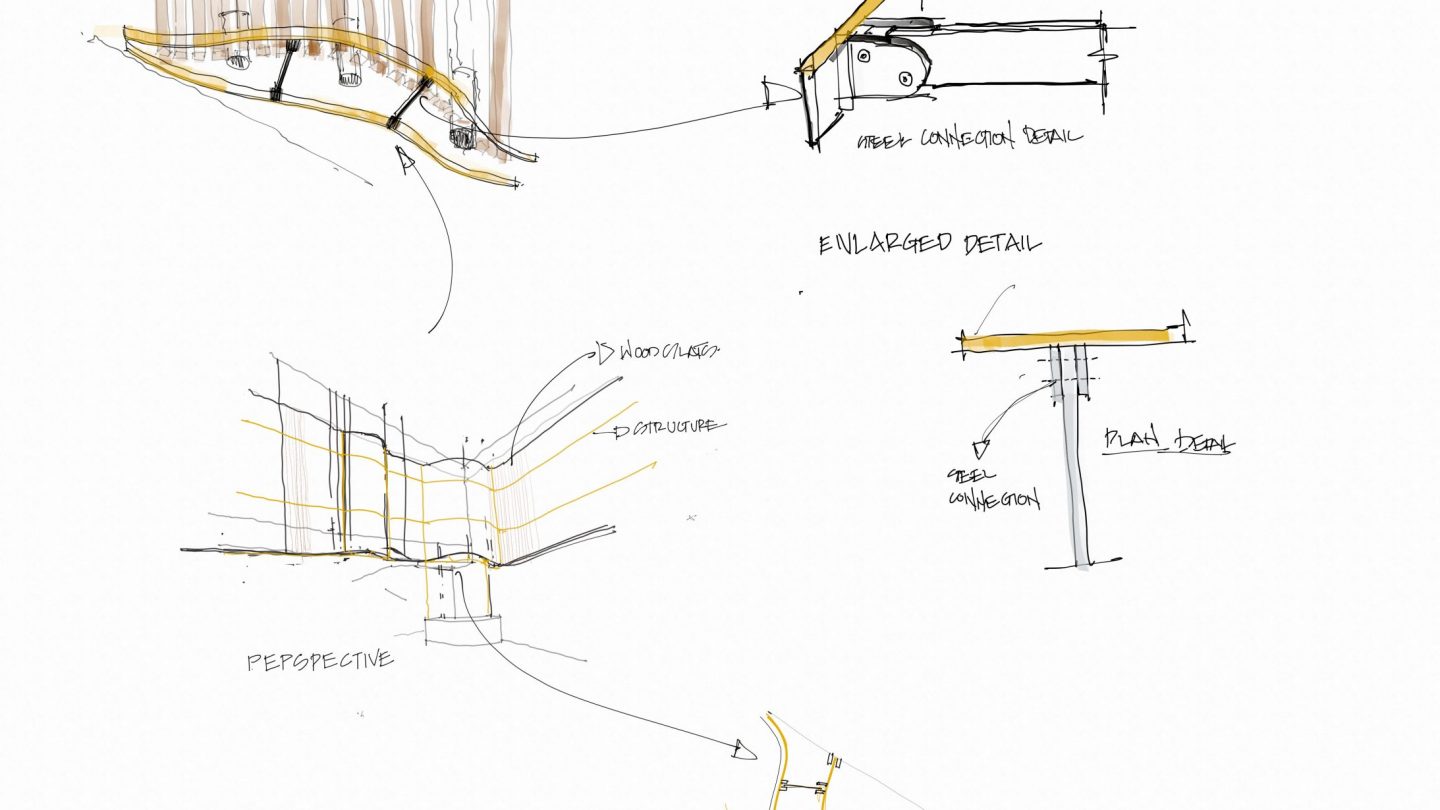 STEEL CONNECTION DETAIL
ENLARGED DETAIL
WOOD SLATS.
STRUCTURE
PLAN DETAIL
STEEL
CONNECTION
PERSPECTIVE